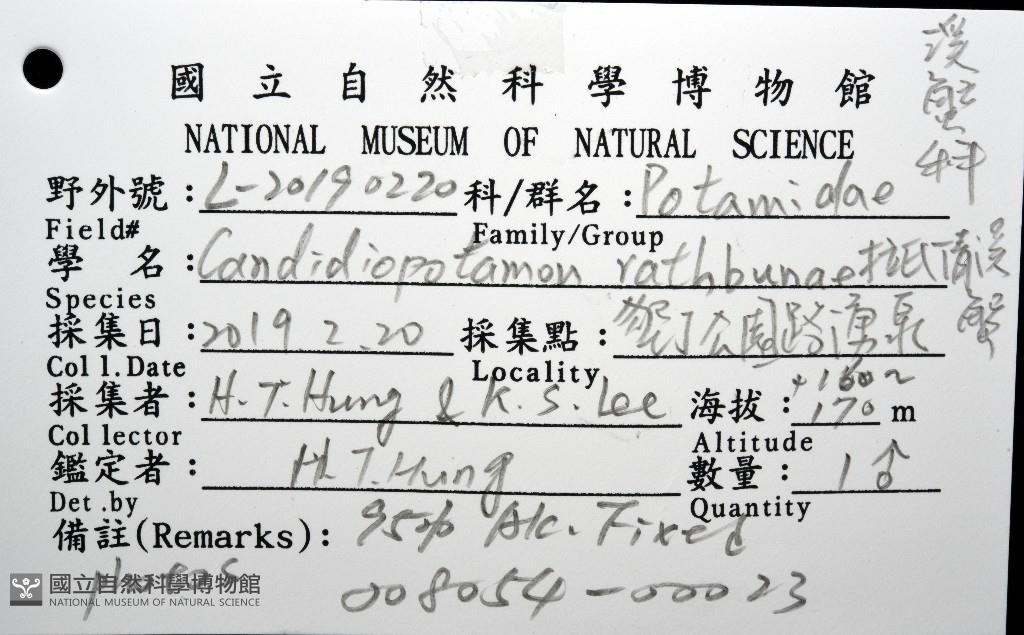 國立自然科學博物館
NATIONAL MUSEUM OF NATURAL SCIENCE
溪蟹科
野外號：L-20190220 科/群名：Potamidae
Field# Family/Group
學名：Candidiopotamon rathbunae 拉氏清溪蟹
Species
採集日：2019 2.20 採集點：墾丁公園路湧泉
Coll.Date Locality
採集者：H.T.Hung & K.S.Lee 海拔：160~170 m
Collector Altitude
鑑定者：H.T.Hung 數量：1♂
Det.by Quantity
備註(Remarks)：95% Alc. Fixed
008054-00023
國立自然科學博物館
NATIONAL MUSEUM OF NATURAL SCIENCE